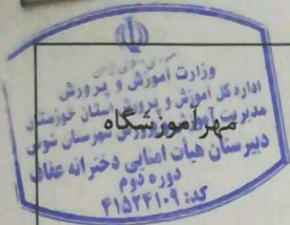 وزارت آموزش و پرورش
اداره کل آموزش و پرورش استان خوزستان
مدیریت آموزش و پرورش شهرستان شوش
مهر آموزشگاه
دبیرستان هیأت امنایی دخترانه عفاف
دوره دوم
کد: ۴۱۵۲۴۱۰۹